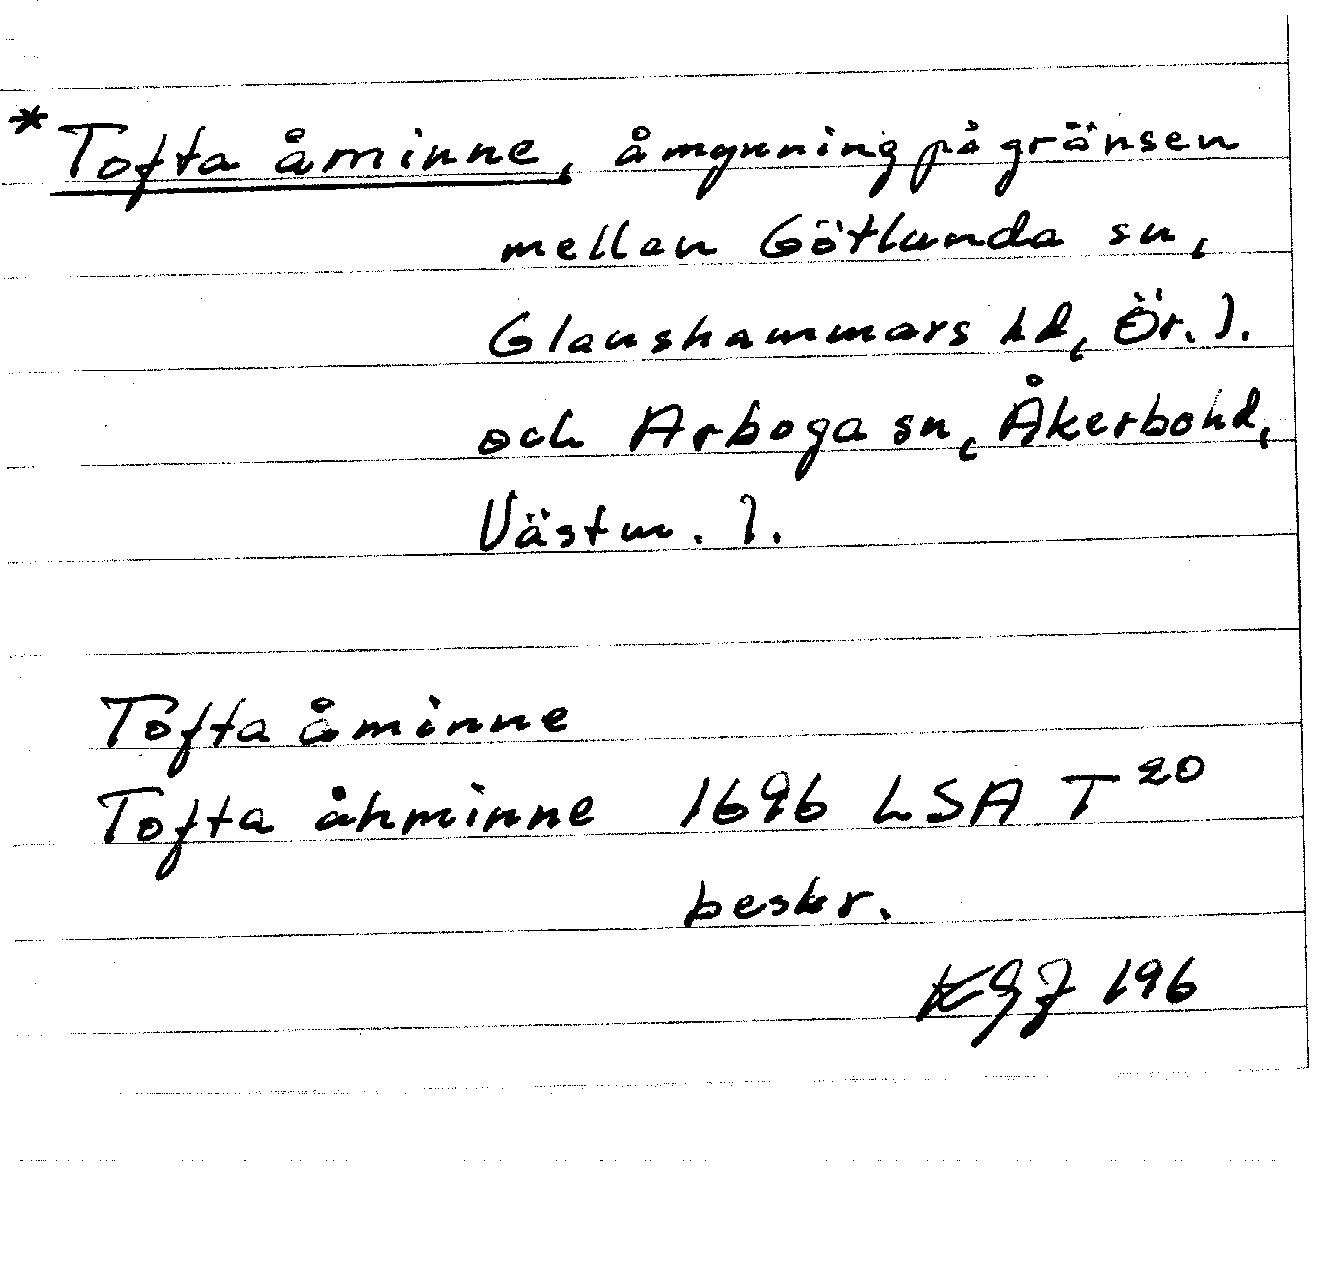 * Tofta åminne, åmynning på gränsen
mellan Götlunda sn,
Glanshammars hd, Ör. l.
och Arboga sn, Åkerbo hd,
Västm. l.
Tofta åminne
Tofta åhminne 1696 LSA T 20
beskr.
KGJ 196